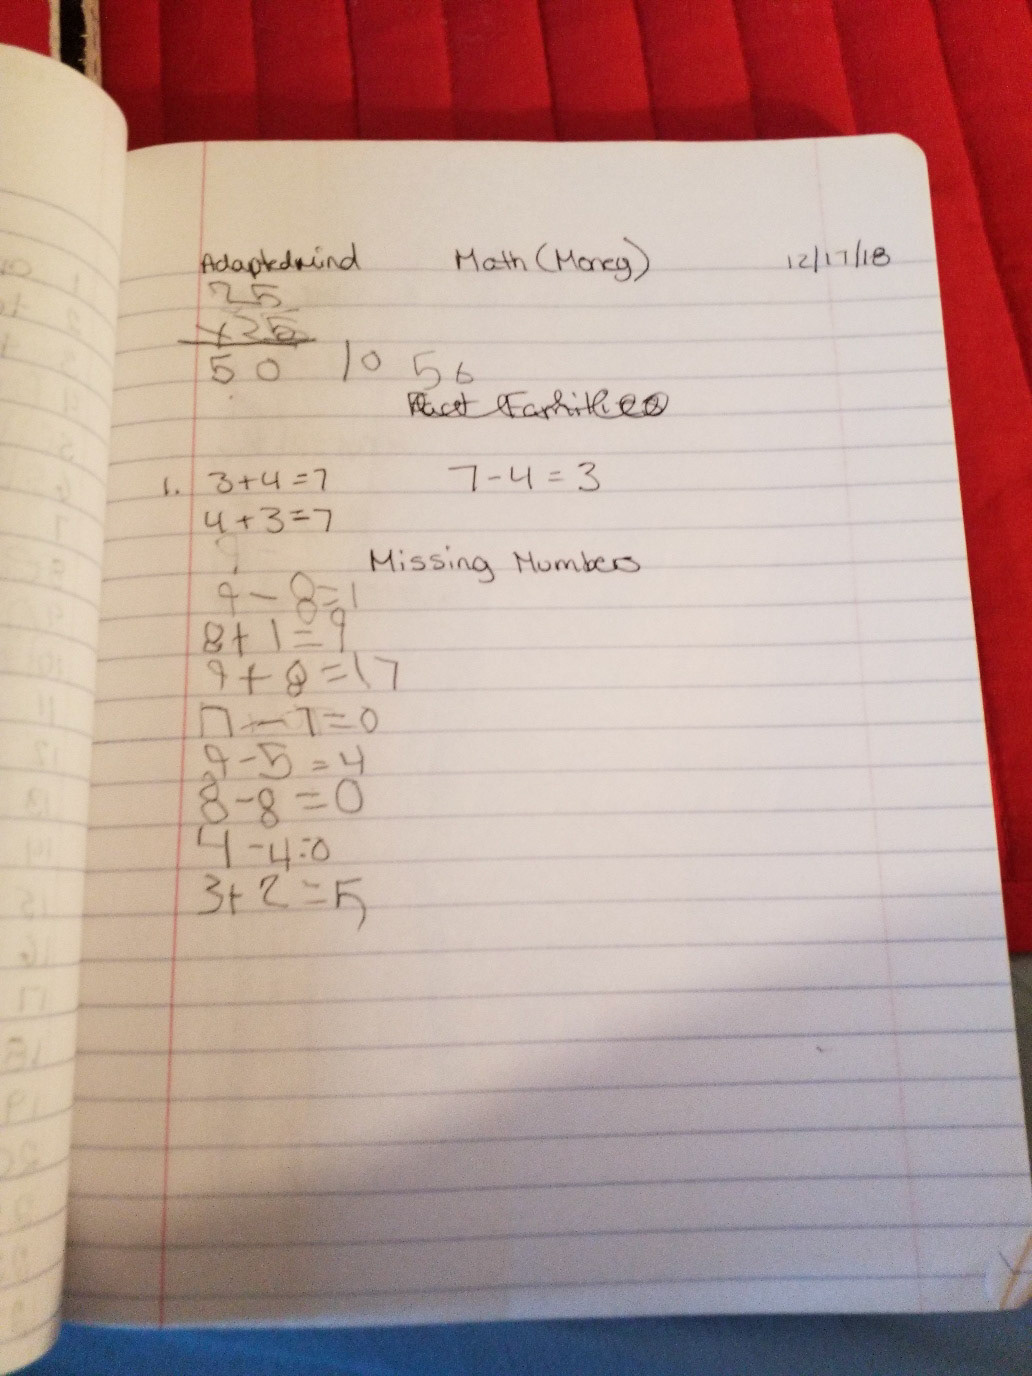 Adaptedmind Math (Money) 12/17/18
25
+25
50 10 56
Fact Families
1. 3+4=7 7-4=3
4+3=7
9
Missing Numbers
9-8=1
8+1=9
9+8=17
7-7=0
9-5=4
8-8=0
4-4=0
3+2=5